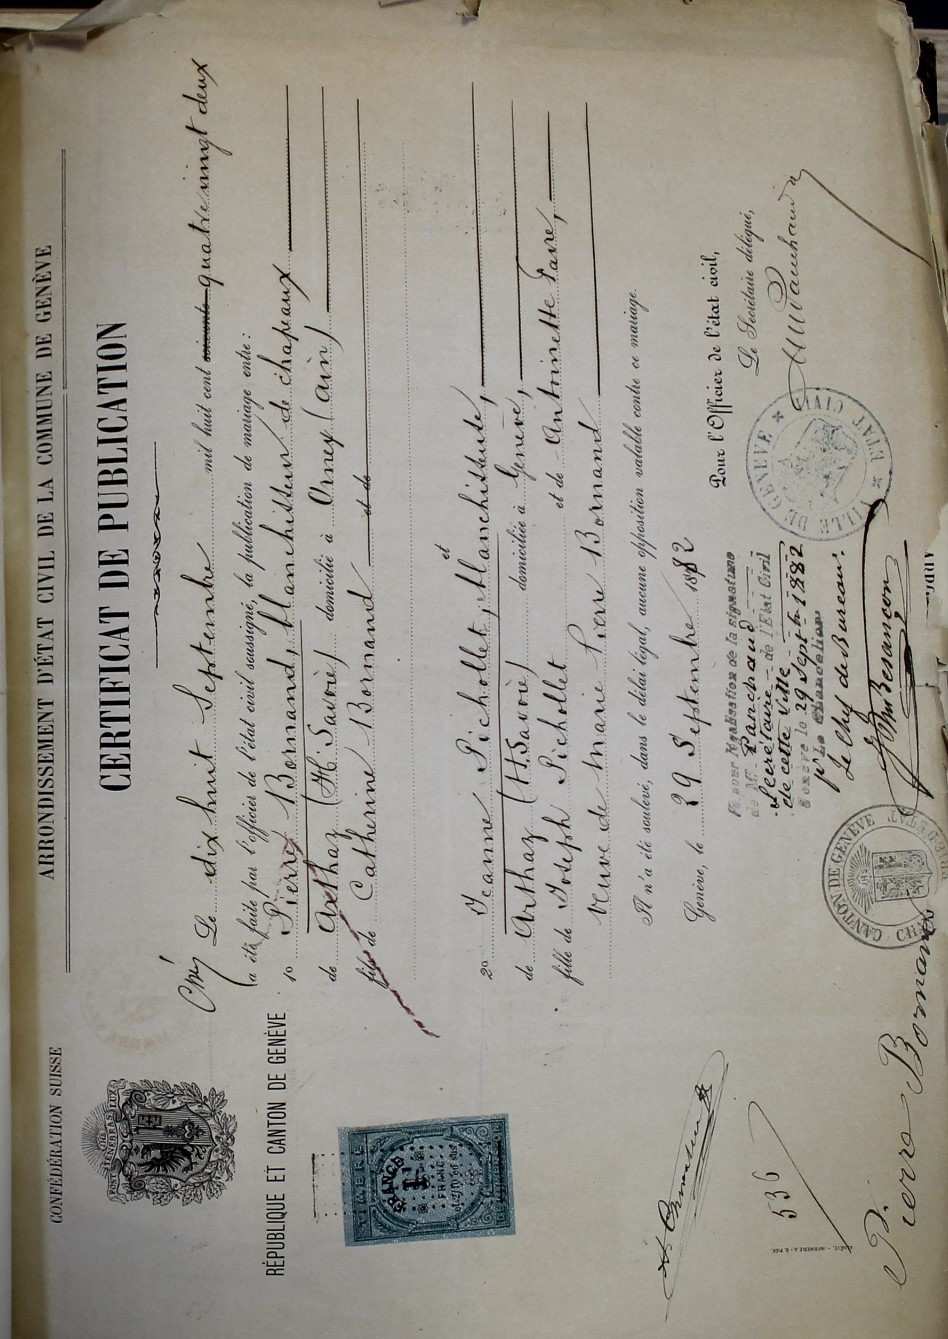 CONFÉDÉRATION SUISSE
ARRONDISSEMENT D'ÉTAT CIVIL DE LA COMMUNE DE GENÈVE
RÉPUBLIQUE ET CANTON DE GENÈVE
CERTIFICAT DE PUBLICATION
Le dix huit Septembre mil huit cent quatre vingt deux
a été faite par l'officier de l'état civil soussigné, la publication de mariage entre :
1º Pierre Bornand, blanchisseur de chapeaux
de Arthaz (Hte Savoie) domicilié à Oney (Ain)
fils de Catherine Bornand et de
et
2º Jeanne Pichollet, blanchisseuse,
de Arthaz (Hte Savoie) domiciliée à Genève,
fille de Joseph Pichollet et de Antoinette Favre,
veuve de Marie Pierre Bornand
Il n'a été soulevé, dans le délai légal, aucune opposition valable contre ce mariage.
Genève, le 29 Septembre 1882
Pour l'Officier de l'état civil,
Le Secrétaire délégué,
Panchaud
TIMBRE
FRANC
1
VILLE DE GENÈVE
ETAT CIVIL
Vu pour légalisation de la signature
de Mr Panchaud
Secrétaire de l'Etat Civil
de cette Ville
Genève le 29 Sept. 1882
pr Le Chancelier
Le chef de Bureau:
Besançon
CANTON DE GENÈVE
536
Pierre Bornand